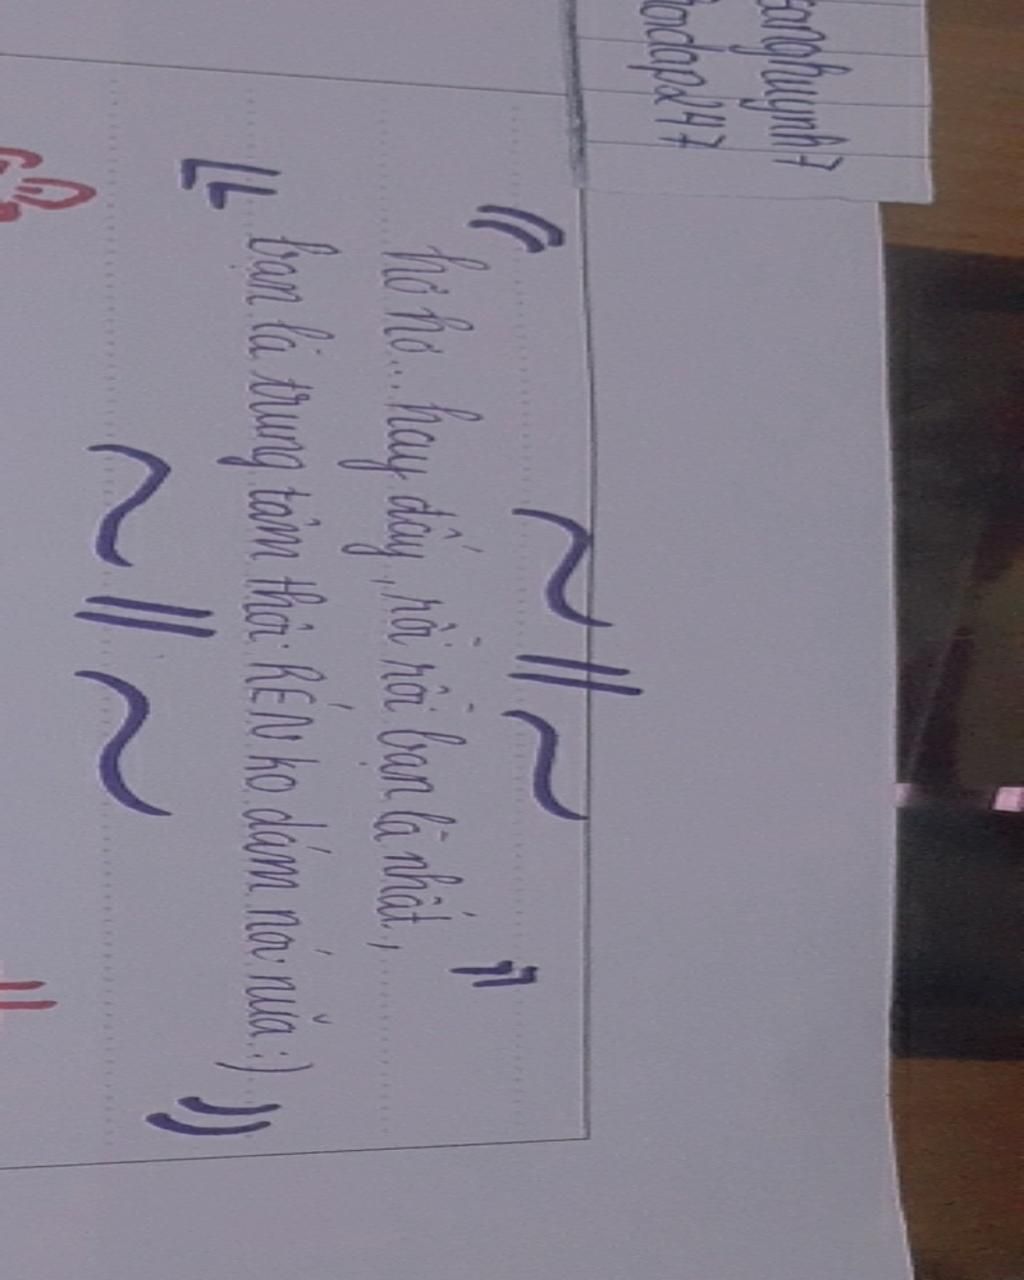 hơ hơ... hay đấy, rồi rồi bạn là nhất,
bạn là trung tâm thôi. RÉN ko dám nói nữa :)